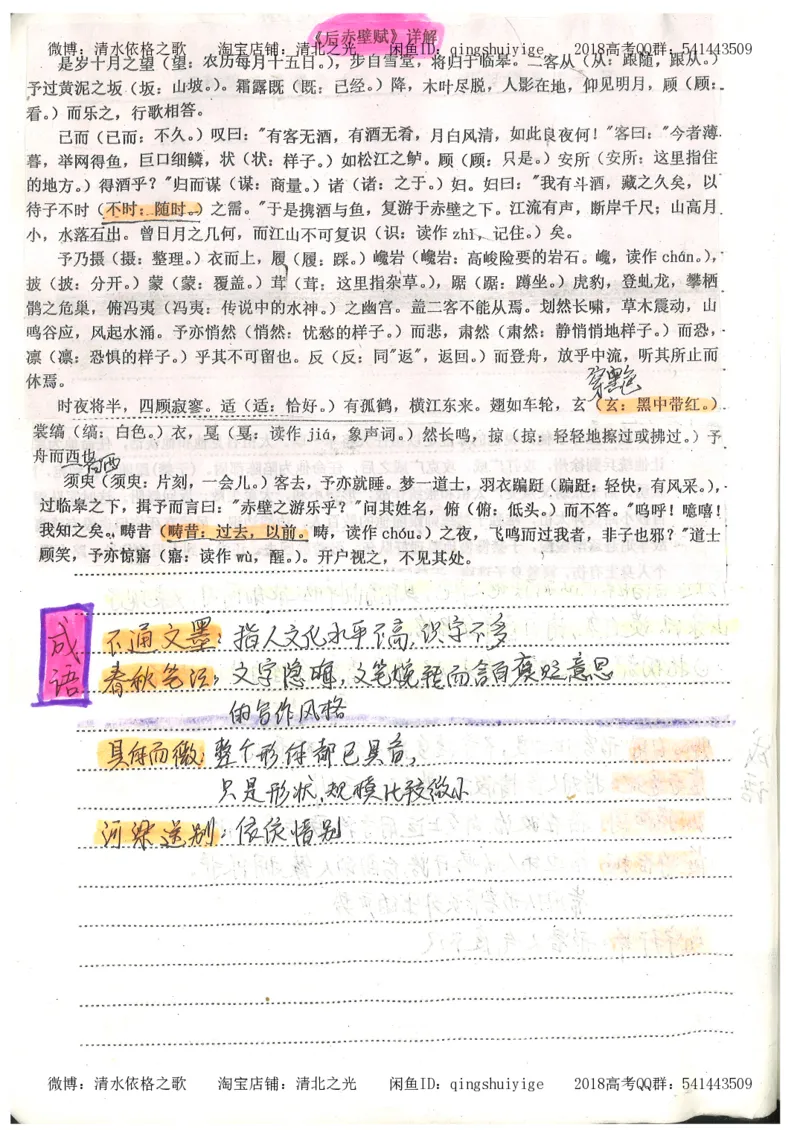 《后赤壁赋》详解
微博：清水依格之歌 淘宝店铺：清北之光 闲鱼ID：qingshuiyige 2018高考QQ群：541443509
是岁十月之望（望：农历每月十五日。），步自雪堂，将归于临皋。二客从（从：跟随，跟从。）
予过黄泥之坂（坂：山坡。）。霜露既（既：已经。）降，木叶尽脱，人影在地，仰见明月，顾（顾：
看。）而乐之，行歌相答。
已而（已而：不久。）叹曰："有客无酒，有酒无肴，月白风清，如此良夜何！"客曰："今者薄
暮，举网得鱼，巨口细鳞，状（状：样子。）如松江之鲈。顾（顾：只是。）安所（安所：这里指住
的地方。）得酒乎？"归而谋（谋：商量。）诸（诸：之于。）妇。妇曰："我有斗酒，藏之久矣，以
待子不时（不时：随时。）之需。"于是携酒与鱼，复游于赤壁之下。江流有声，断岸千尺；山高月
小，水落石出。曾日月之几何，而江山不可复识（识：读作zhì，记住。）矣。
予乃摄（摄：整理。）衣而上，履（履：踩。）巉岩（巉岩：高峻险要的岩石。巉，读作chán。），
披（披：分开。）蒙（蒙：覆盖。）茸（茸：这里指杂草。），踞（踞：蹲坐。）虎豹，登虬龙，攀栖
鹘之危巢，俯冯夷（冯夷：传说中的水神。）之幽宫。盖二客不能从焉。划然长啸，草木震动，山
鸣谷应，风起水涌。予亦悄然（悄然：忧愁的样子。）而悲，肃然（肃然：静悄悄地样子。）而恐，
凛（凛：恐惧的样子。）乎其不可留也。反（反：同"返"，返回。）而登舟，放乎中流，听其所止而
休焉。
穿黑色
时夜将半，四顾寂寥。适（适：恰好。）有孤鹤，横江东来。翅如车轮，玄（玄：黑中带红。）
裳缟（缟：白色。）衣，戛（戛：读作jiá，象声词。）然长鸣，掠（掠：轻轻地擦过或拂过。）予
舟而西也
向西
须臾（须臾：片刻，一会儿。）客去，予亦就睡。梦一道士，羽衣蹁跹（蹁跹：轻快，有风采。），
过临皋之下，揖予而言曰："赤壁之游乐乎？"问其姓名，俯（俯：低头。）而不答。"呜呼！噫嘻！
我知之矣。畴昔（畴昔：过去，以前。畴，读作chóu。）之夜，飞鸣而过我者，非子也邪？"道士
顾笑，予亦惊寤（寤：读作wù，醒。）。开户视之，不见其处。
成语
不通文墨：指人文化水平不高，识字不多
春秋笔法：文字隐晦，文笔婉转而含有褒贬意思
的写作风格
具体而微：整个形体都已具备，
只是形状，规模比较微小
河梁送别：依依惜别
微博：清水依格之歌 淘宝店铺：清北之光 闲鱼ID：qingshuiyige 2018高考QQ群：541443509